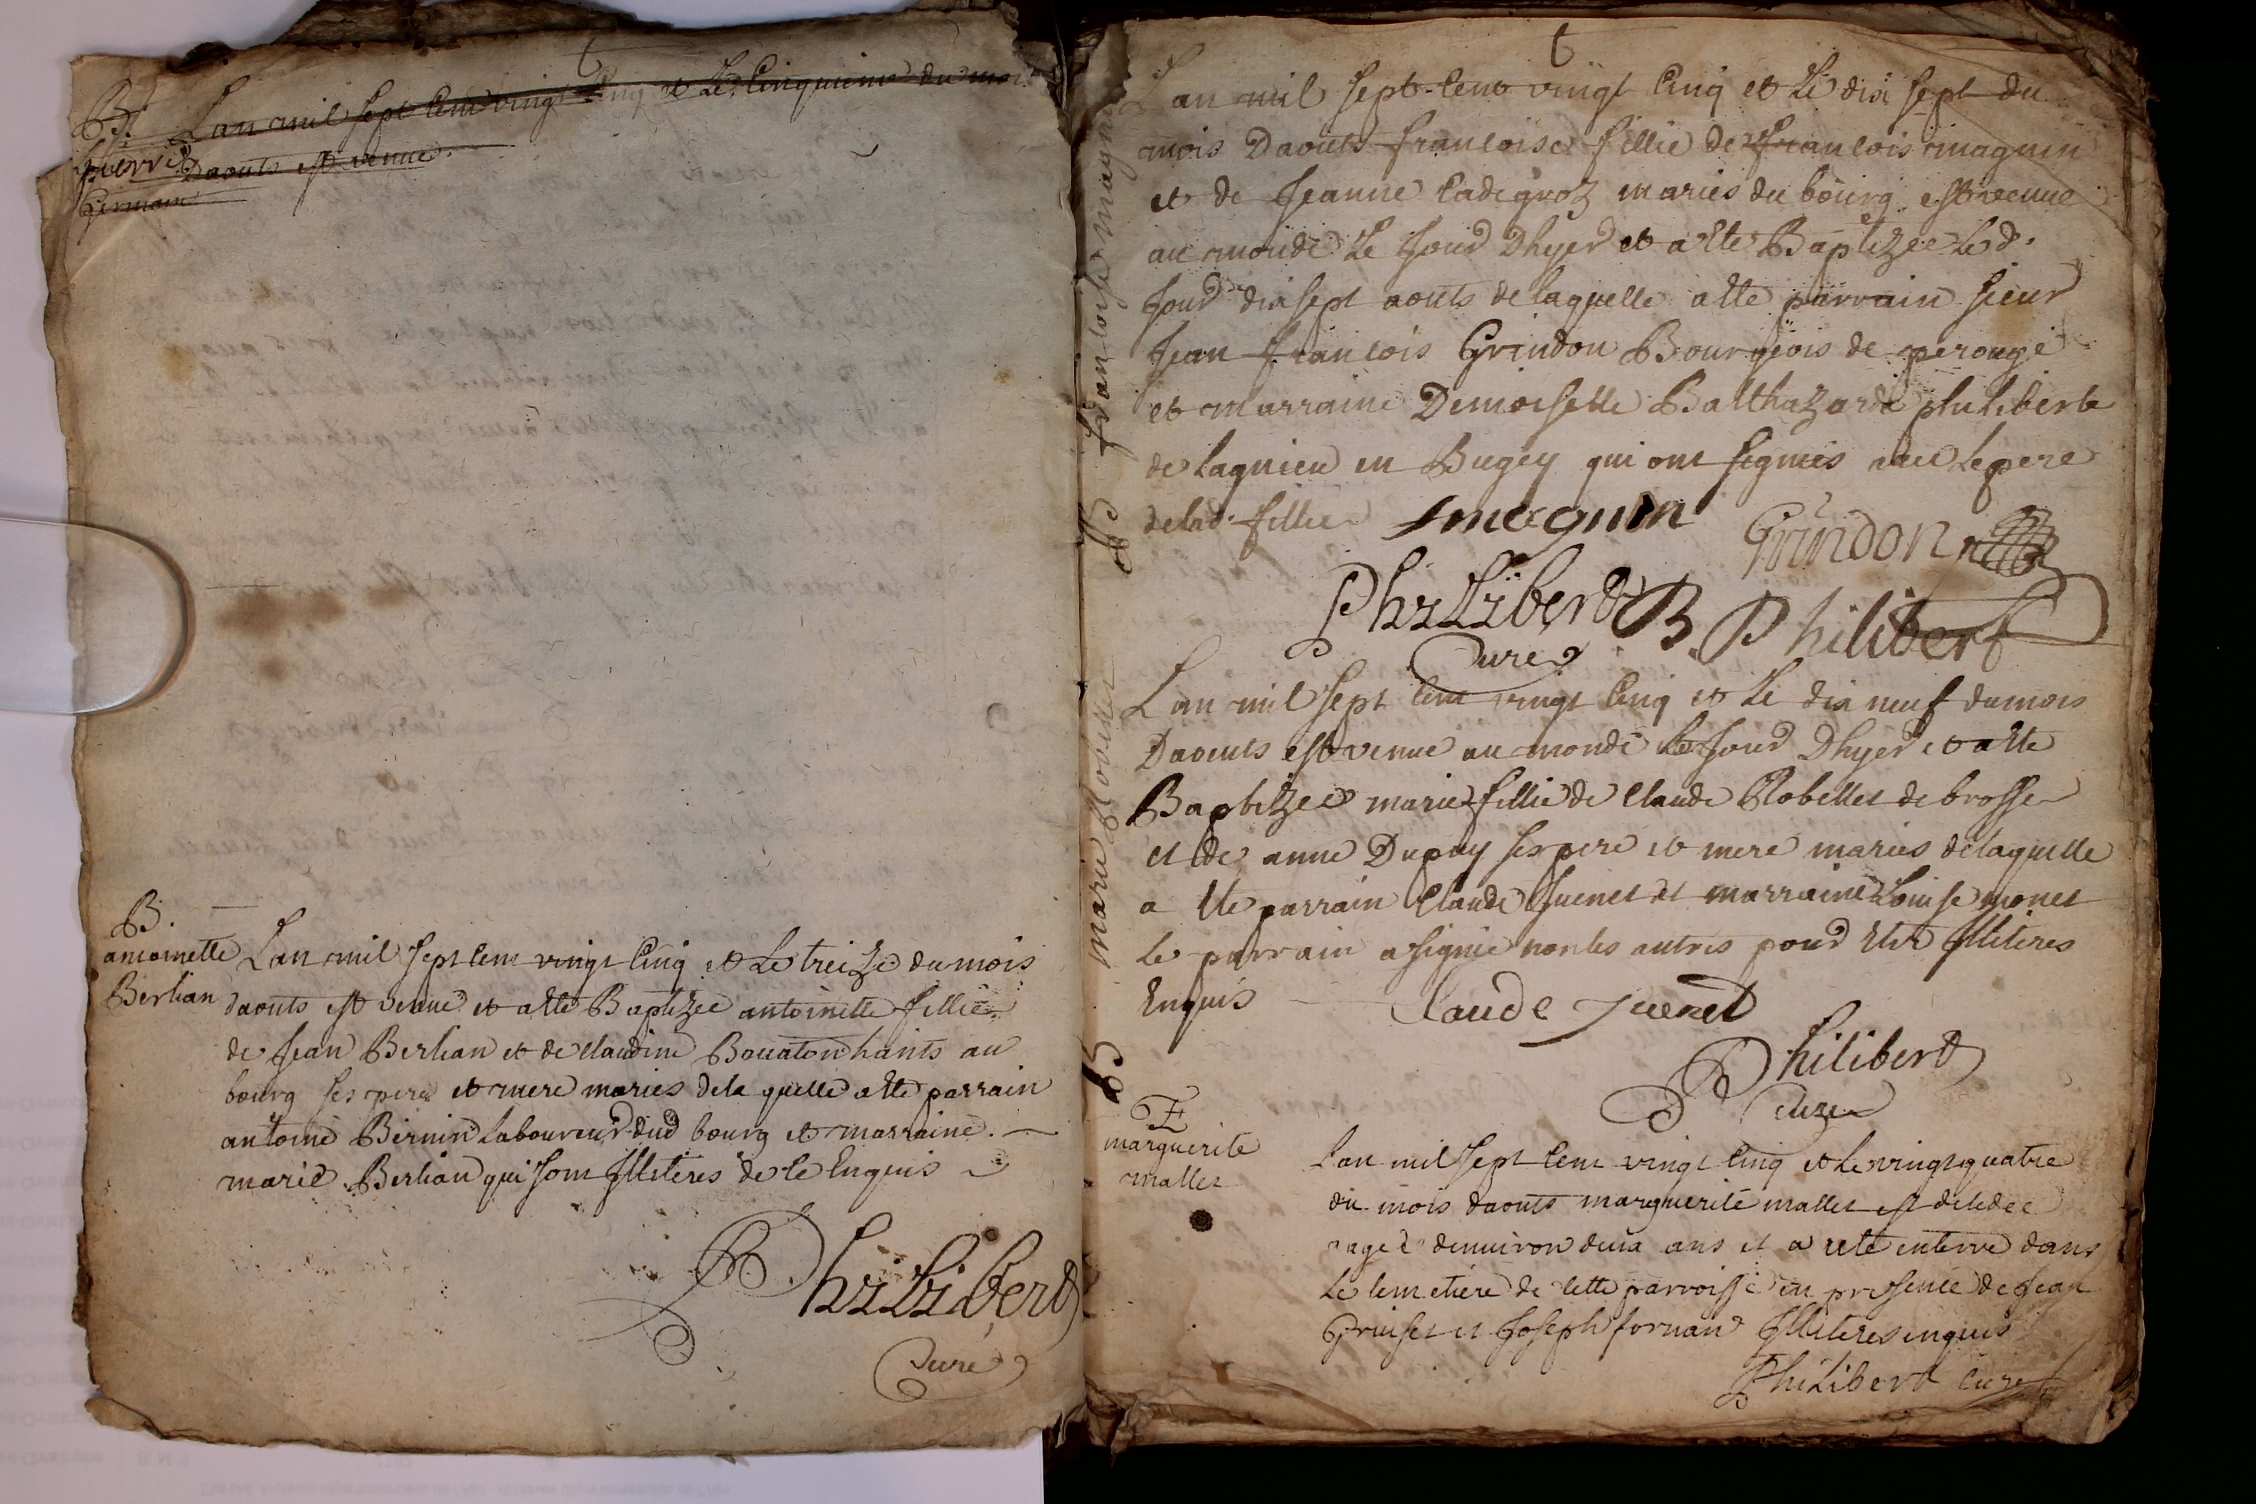 B.
pierre
Germain
Lan mil sept cent vingt cinq et Le Cinquieme du mois
Daouts est venue
B.
antoinette
Berlian
Lan mil sept cent vingt cinq et Le treize du mois
daouts est venue et a etté Baptizée antoinette fillie
de Jean Berlian et de claudine Bouaton hants au
bourg ses pere et mere maries de la quelle a etté parrain
antoine Bernin Laboureur dud bourg et marraine
marie Berlian qui sont Illiteres de ce Enquis
Philibert
Curé
B françoise magnin
Lan mil sept cent vingt cinq et Le dix sept du
mois Daouts françoise fillie de françois magnin
et de Jeanne Cadegroz maries du bourg est venue
au monde Le Jour Dhyer et a etté Baptizée Le d.
Jour dix sept aouts de laquelle a etté parrain sieur
Jean françois Grindon Bourgeois de perouge
et marraine Demoiselle Balthazarde philiberte
de Lagnieu en Bugey qui ont signiés avec Le pere
de lad. fillie fmagnin Grindon
Philibert B Philibert
Curé
B marie Robellet
Lan mil sept cent vingt cinq et Le dix neuf du mois
Daouts est venue au monde Le Jour Dhyer et a etté
Baptizée marie fillie de Claude Robellet de brosse
et de anne Dupuy ses pere et mere maries de laquelle
a etté parrain Claude Juenet et marraine Louise monet
Le parrain a signié non les autres pour etre Illiteres
Enquis Claude Juenet
Philibert
Curé
E
marguerite
mallet
Lan mil sept cent vingt cinq et Le vingt quatre
du mois daouts marguerite mallet est decedée
agée denuiron deux ans et a etté enterré dans
Le cemetiere de cette parroisse en presence de Jean
et Joseph fornan Illiteres enquis
Philibert Curé